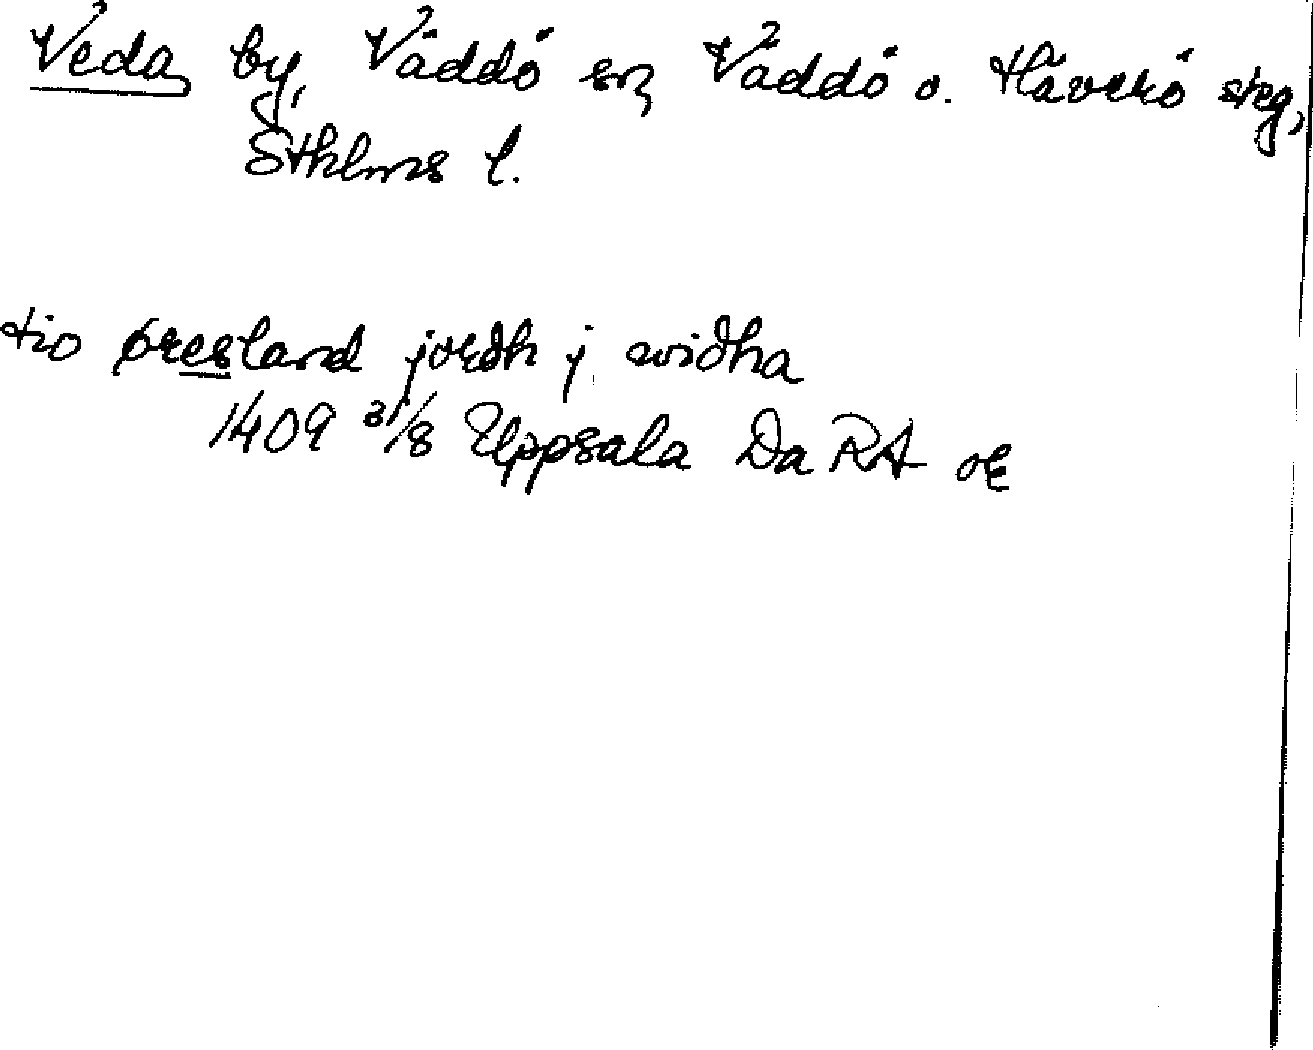 Veda by, Väddö sn, Väddö o. Häverö skg,
Sthlms l.
tio øresland jordh j widha
1409 31/8 Uppsala Da RA or